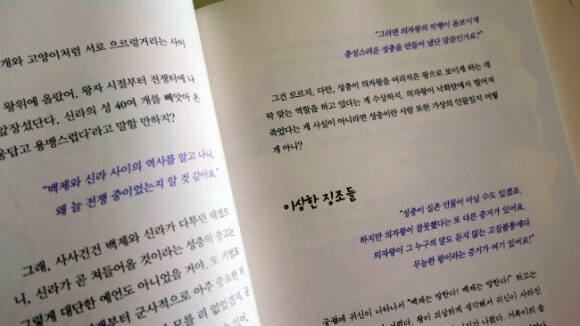 개와 고양이처럼 서로 으르렁거리는 사이
왕위에 올랐어. 왕자 시절부터 전쟁터에 나
앞장섰단다. 신라의 성 40여 개를 빼앗아 온
용맹스럽다'라고 말할 만하지?
"백제와 신라 사이의 역사를 알고 나니,
왜 늘 전쟁 중이었는지 알 것 같아요."
그래. 사사건건 백제와 신라가 다투던 때였으
니, 신라가 곧 쳐들어올 것이라는 성충의 충고는
그렇게 대단한 예언도 아니었을 거야. 또 기벌포
부터 군사적으로 아주 중요한 지
모를 리 없었겠지.
"그러면 의자왕의 악행이 돋보이게
충성스러운 성충을 만들어 냈단 말씀인가요?"
그건 모르지. 다만, 성충이 의자왕을 어리석은 왕으로 보이게 하는 데
딱 맞는 역할을 하고 있다는 게 수상하지. 의자왕이 낙화암에서 떨어져
죽었다는 게 사실이 아니라면 성충이란 사람 또한 가상의 인물일지 어떻
게 아니?
이상한 징조들
"성충이 실존 인물이 아닐 수도 있겠죠.
하지만 의자왕이 잘못했다는 또 다른 증거가 있어요.
의자왕이 그 누구의 말도 듣지 않는 고집불통에다
무능한 왕이라는 증거가 여기 있어요!"
궁궐에 귀신이 나타나서 "백제는 망한다! 백제는 망한다!" 하고는
왕이 괴상하게 생각해서 귀신이 사라진